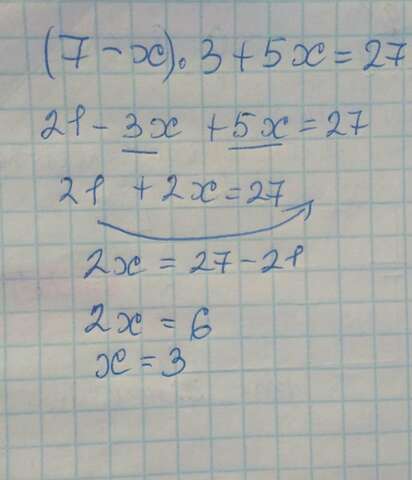 (7 - x) · 3 + 5x = 27
21 - 3x + 5x = 27
21 + 2x = 27
2x = 27 - 21
2x = 6
x = 3